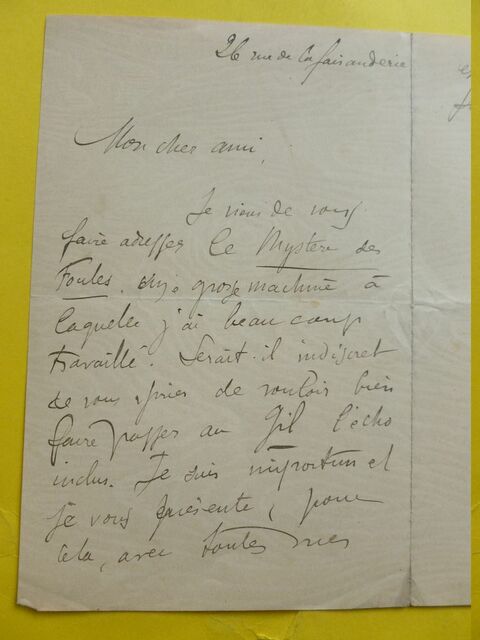 26 rue de la faisanderie
Mon cher ami,
Je viens de vous
faire adresser Le Mystère des
Foules. une grosse machine à
laquelle j'ai beaucoup
travaillé. Serait-il indiscret
de vous prier de vouloir bien
faire passer au Gil l'écho
inclus. Je suis importun et
je vous présente, pour
cela, avec toutes mes